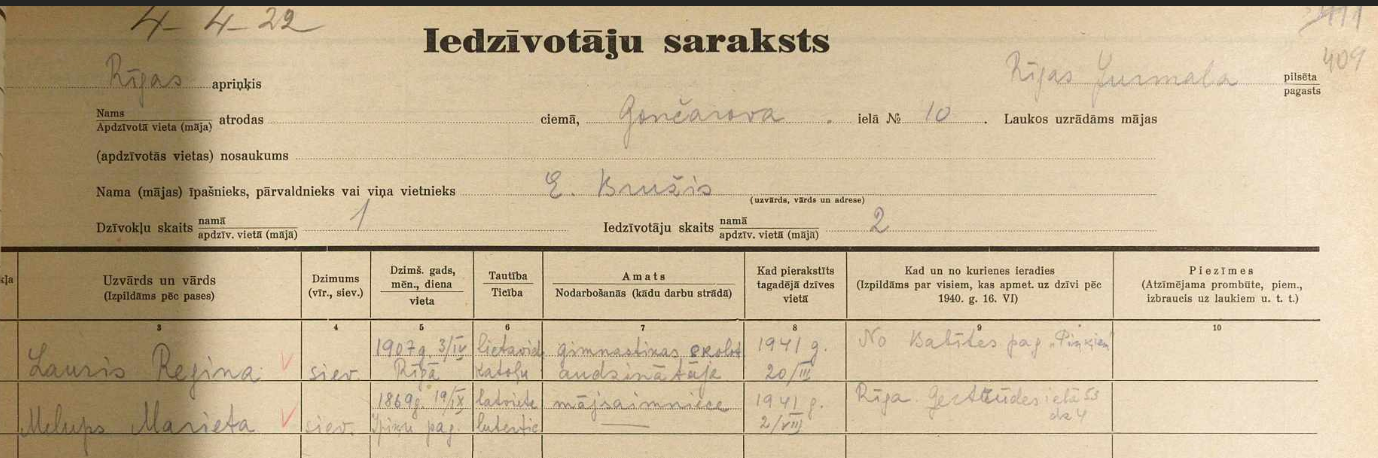 4-4-22
409
Iedzīvotāju saraksts
Rīgas apriņķis Rīgas Jurmala pilsēta
pagasts
Nams
Apdzīvotā vieta (māja) atrodas ciemā, Gončarova . ielā № 10 . Laukos uzrādāms mājas
(apdzīvotās vietas) nosaukums
Nama (mājas) īpašnieks, pārvaldnieks vai viņa vietnieks E. Bružis
(uzvārds, vārds un adrese)
Dzīvokļu skaits namā 1 Iedzīvotāju skaits namā 2
apdzīv. vietā (mājā) apdzīv. vietā (mājā)
Uzvārds un vārds
(Izpildāms pēc pases)
Dzimums
(vīr., siev.)
Dzimš. gads,
mēn., diena
vieta
Tautība
Ticība
Amats
Nodarbošanās (kādu darbu strādā)
Kad pierakstīts
tagadējā dzīves
vietā
Kad un no kurienes ieradies
(Izpildāms par visiem, kas apmet. uz dzīvi pēc
1940. g. 16. VI)
Piezīmes
(Atzīmējama prombūte, piem.,
izbraucis uz laukiem u. t. t.)
3 4 5 6 7 8 9 10
Lauris Regina siev.
1907 g. 3/IV
Rīgā
lietaviet
katoļu
gimnastikas skolot
audzinātāja
1941 g.
20/III
No Babītes pag.
Melups Marieta siev.
1869g. 19/IX
pag.
latviete
luteritic
mājsaimniece
1941 g.
2/VIII
Rīga Ģertrūdes ielā 53
dz 4